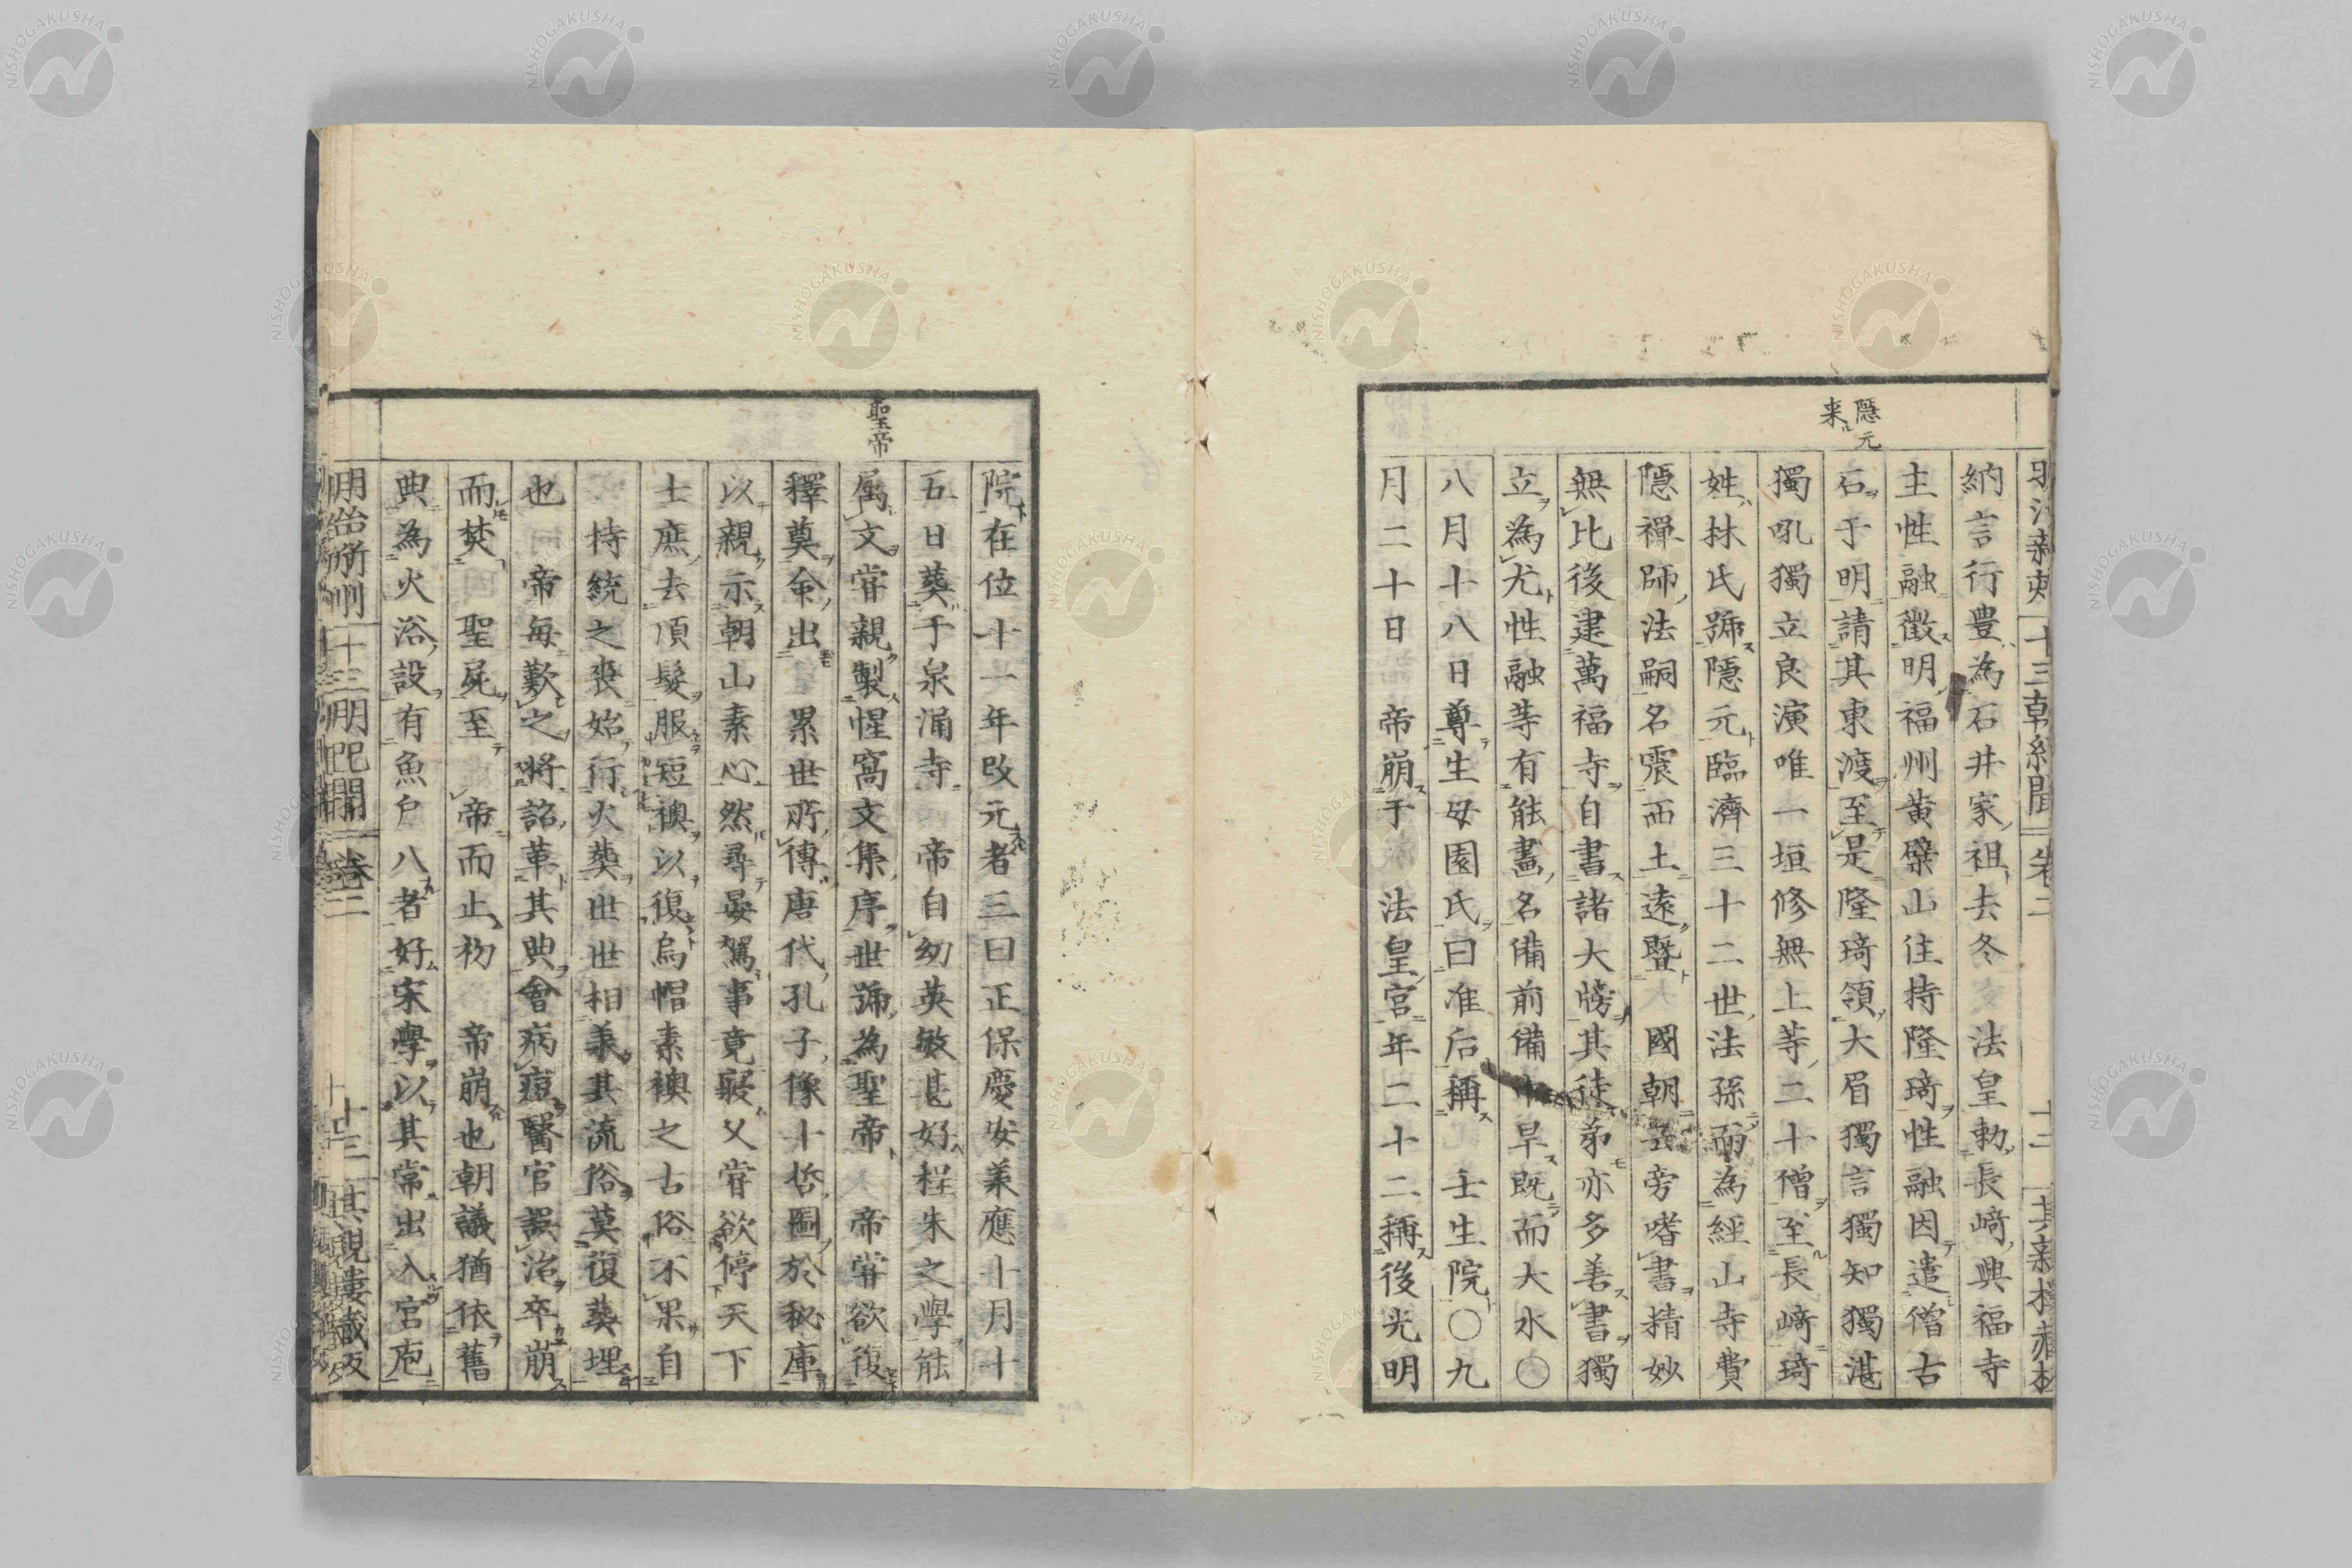 隱元
来
納言行豊為石井家祖去冬 法皇勅長﨑興福寺
主性融徵明福州黄檗山住持隆琦性融因遣僧古
石于明請其東渡至是隆琦領大眉獨言獨知獨湛
獨吼獨立良演唯一垣修無上等二十僧至長﨑琦
姓林氏號隱元臨濟三十二世法孫而為經山寺費
隱禪師法嗣名震西土遠曁 國朝云旁嗜書精妙
無比後建萬福寺自書諸大牓其徒弟亦多善書獨
立為尤性融等有能畫名備前備中旱既而大水〇
八月十八日尊生母園氏曰准后稱 壬生院〇九
月二十日 帝崩于 法皇宮年二十二稱後光明
聖帝
院在位十一年改元者三曰正保慶安兼應十月十
五日葬于泉涌寺 帝自幼英敏甚好程朱之學能
属文甞親製惺窩文集序世號為聖帝 帝甞欲復
釋奠命出 累世所傳唐代孔子像十哲圖於秘庫
以親示朝山素心然尋晏駕事竟寢又甞欲停天下
士庶去頂髮服短襖以復烏帽素襖之古俗不果自
持統之喪始行火葬世世相兼其流俗莫復葬埋
也 帝毎歎之將詔革其典會病痘醫官誤治卒崩
而焚 聖屍至 帝而止初 帝崩也朝議猶依舊
典為火浴設有魚戶八者好宋學以其常出入宮庖
十三朝紀聞 卷二 十三 其親樓藏
NISHOGAKUSHA